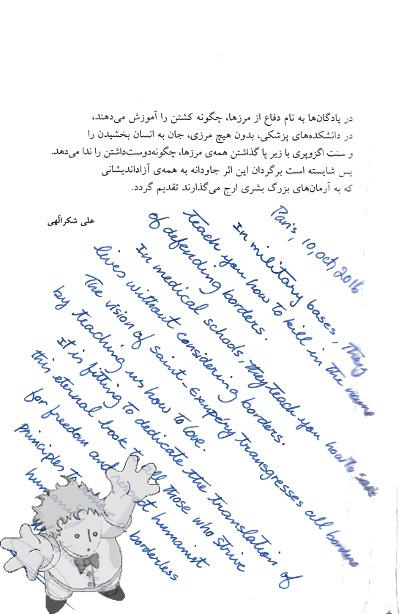 در پادگان‌ها به نام دفاع از مرزها، چگونه کشتن را آموزش می‌دهند،
در دانشکده‌های پزشکی، بدون هیچ مرزی، جان به انسان بخشیدن را
و سنت اگزوپری با زیر پا گذاشتن همه‌ی مرزها، چگونه‌دوست‌داشتن را ندا می‌دهد.
پس شایسته است برگردان این اثر جاودانه به همه‌ی آزاداندیشانی
که به آرمان‌های بزرگ بشری ارج می‌گذارند تقدیم گردد.
علی شکرالهی
Paris, 10, oct, 2016
In military bases, they
teach you how to kill in the name
of defending borders.
In medical schools, they teach you how to save
lives without considering borders.
The vision of Saint-Exupéry transgresses all borders
by teaching us how to love.
It is fitting to dedicate the translation of
this eternal book to all those who strive
for freedom and respect humanist
principles to
borderless